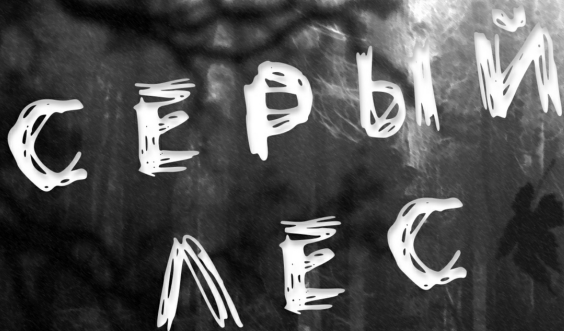 СЕРЫЙ
ЛЕС